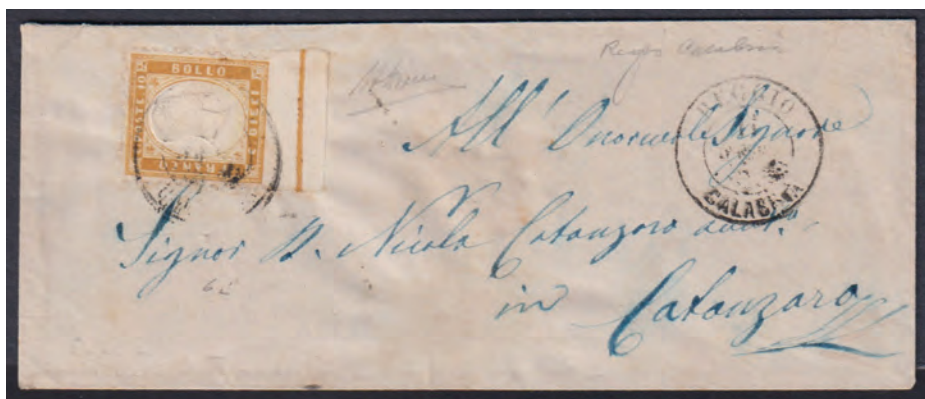 Reggio Calabria
BOLLO
FRANCO
REGGIO
CALABRIA
All' Onorevole Signore
Signor D. Nicola Catanzaro
in Catanzaro